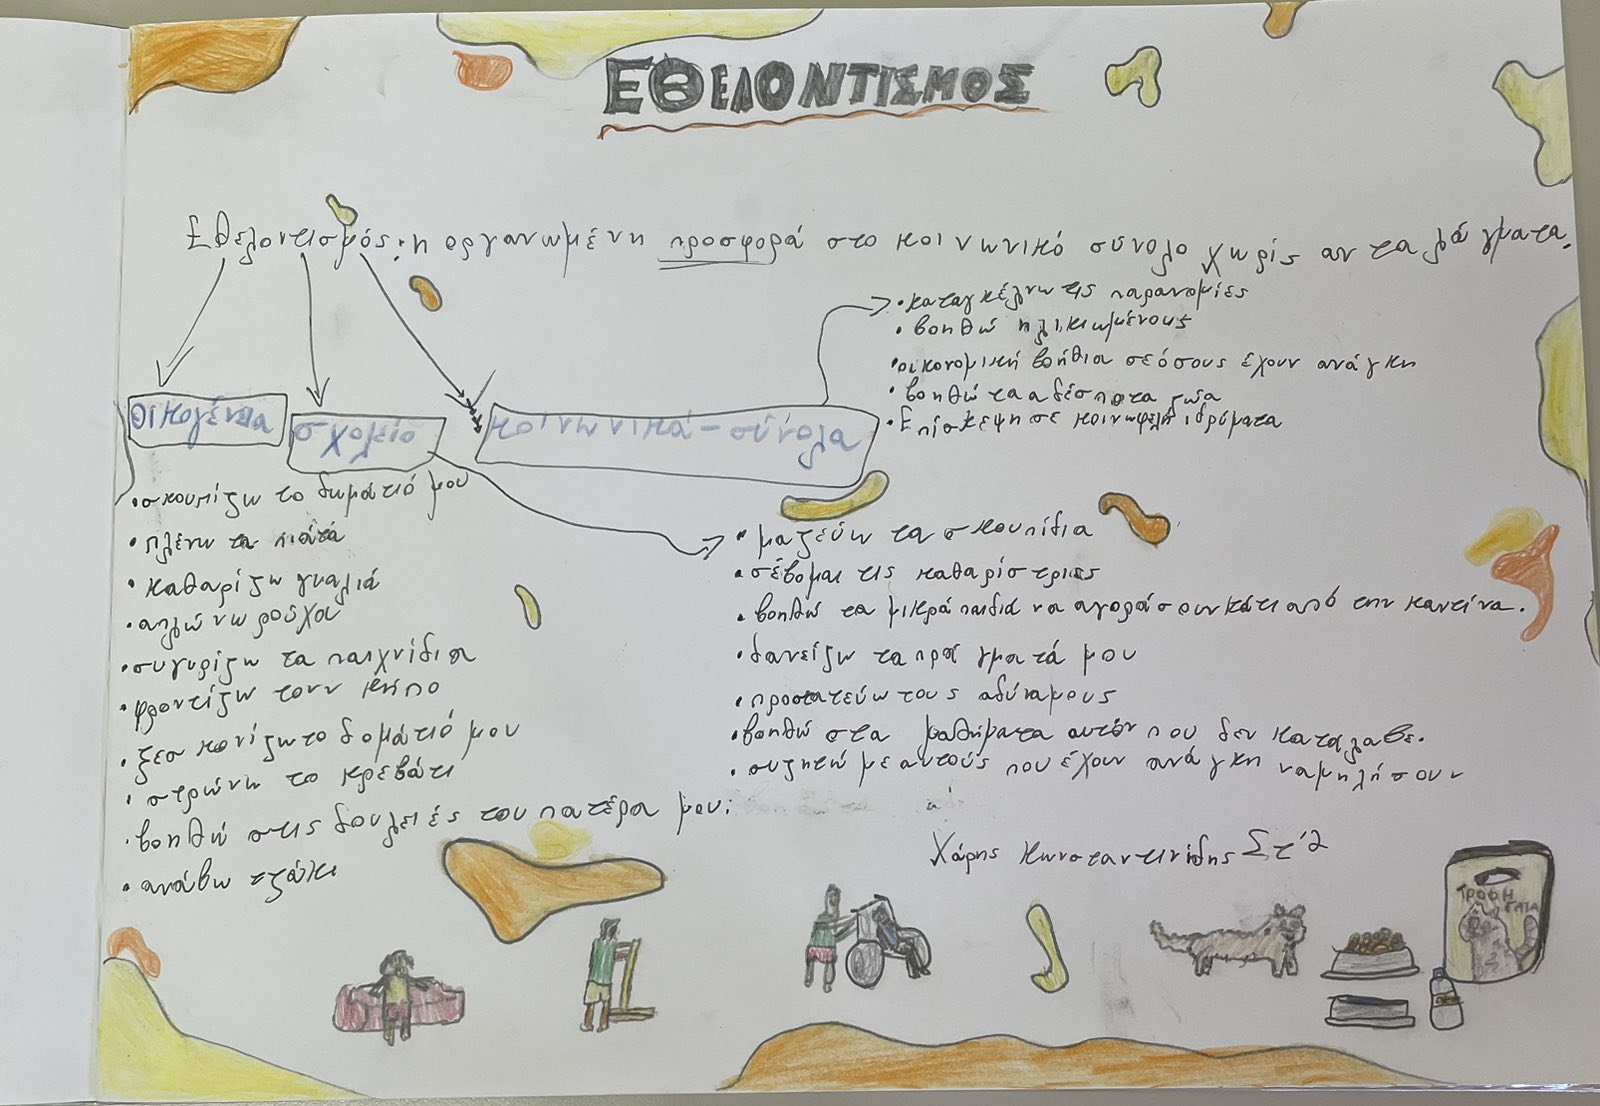 ΕΘΕΛΟΝΤΙΣΜΟΣ
Εθελοντισμός: η οργανωμένη προσφορά στο κοινωνικό σύνολο χωρίς ανταλάγματα.
• καταγκέλνω τις παρανομίες
• βοηθώ ηλικιωμένους
• οικονομική βοήθια σε όσους έχουν ανάγκη
• βοηθώ τα αδέσποτα ζώα
• Επίσκεψη σε κοινωφελή ιδρύματα
οικογένεια
σχολείο
κοινωνικά-σύνολα
• σκουπίζω το δωμάτιό μου
• πλένω τα πιάτα
• καθαρίζω γυαλιά
• απλώνω ρούχα
• συγυρίζω τα παιχνίδια
• φροντίζω τονν κήπο
• ξεσκονίζω το δομάτιό μου
• στρώνω το κρεβάτι
• βοηθώ στις δουλειές του πατέρα μου.
• ανάβω τζάκι
• μαζεύω τα σκουπίδια
• σέβομαι τις καθαρίστριες
• βοηθώ τα μικρά παιδιά να αγοράσουν κάτι από την καντίνα.
• δανείζω τα πράγματά μου
• προστατεύω τους αδύναμους
• βοηθώ στα μαθήματα αυτόν που δεν κατάλαβε.
• συζητώ με αυτούς που έχουν ανάγκη να μηλήσουν
Χάρης Κωνσταντινίδης Στ'2
ΤΡΟΦΗ
ΓΑΤΑ